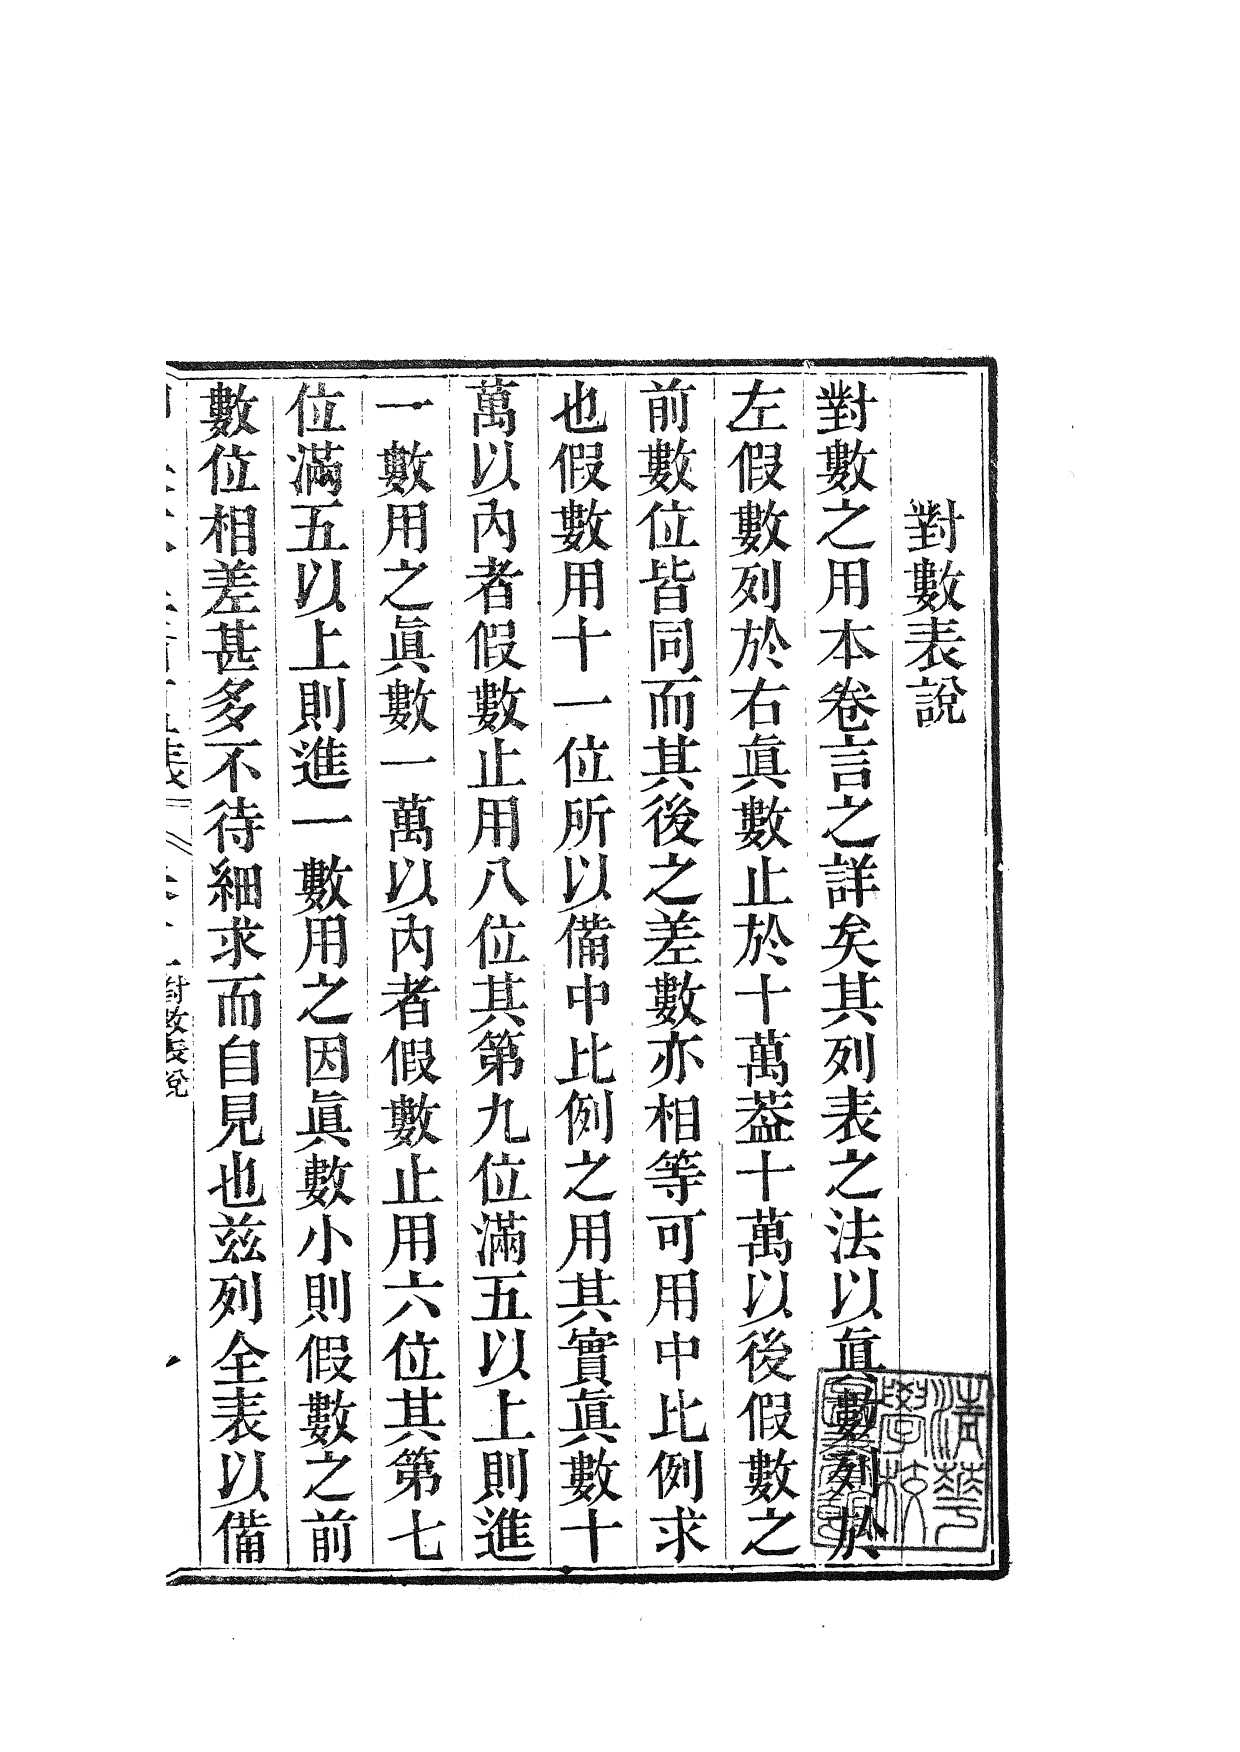 對數表說
對數之用本卷言之詳矣其列表之法以眞數列於
左假數列於右眞數止於十萬葢十萬以後假數之
前數位皆同而其後之差數亦相等可用中比例求
也假數用十一位所以備中比例之用其實眞數十
萬以內者假數止用八位其第九位滿五以上則進
一數用之眞數一萬以內者假數止用六位其第七
位滿五以上則進一數用之因眞數小則假數之前
數位相差甚多不待細求而自見也兹列全表以備
表
對數表說
清華
學校